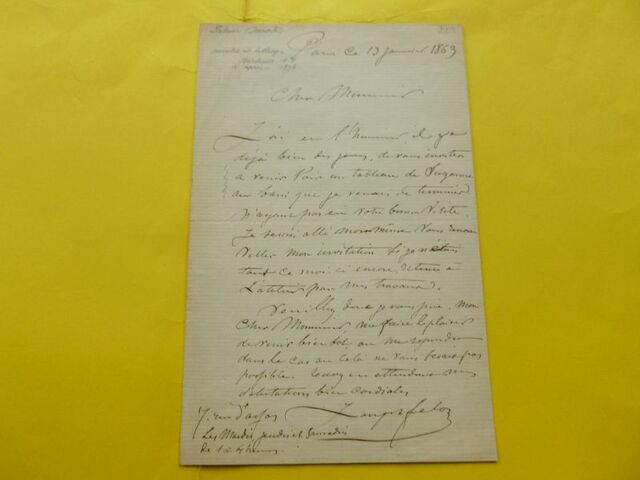 Paris Ce 13 janvier 1863
Cher Monsieur
J'ai eu l'honneur, il y a
déjà bien des jours, de vous inviter
a venir voir un tableau de Suzanne
au bain que je venais de terminer
N'ayant pas eu votre bonne visite
Je serais allé moi même vous renou
veller mon invitation si je n'étais
tout ce moi ci encore detenu a
L'atelier par mes travaux.
Veuillez donc je vous prie, mon
Cher Monsieur, me faire le plaisir
de venir bientot ou me repondre
dans le cas ou cela ne vous serait pas
possible. Recevez en attendant mes
salutations bien cordiales
7. rue d'assas
Les Mardis jeudis et Samedis
de 1 a 4 heures.